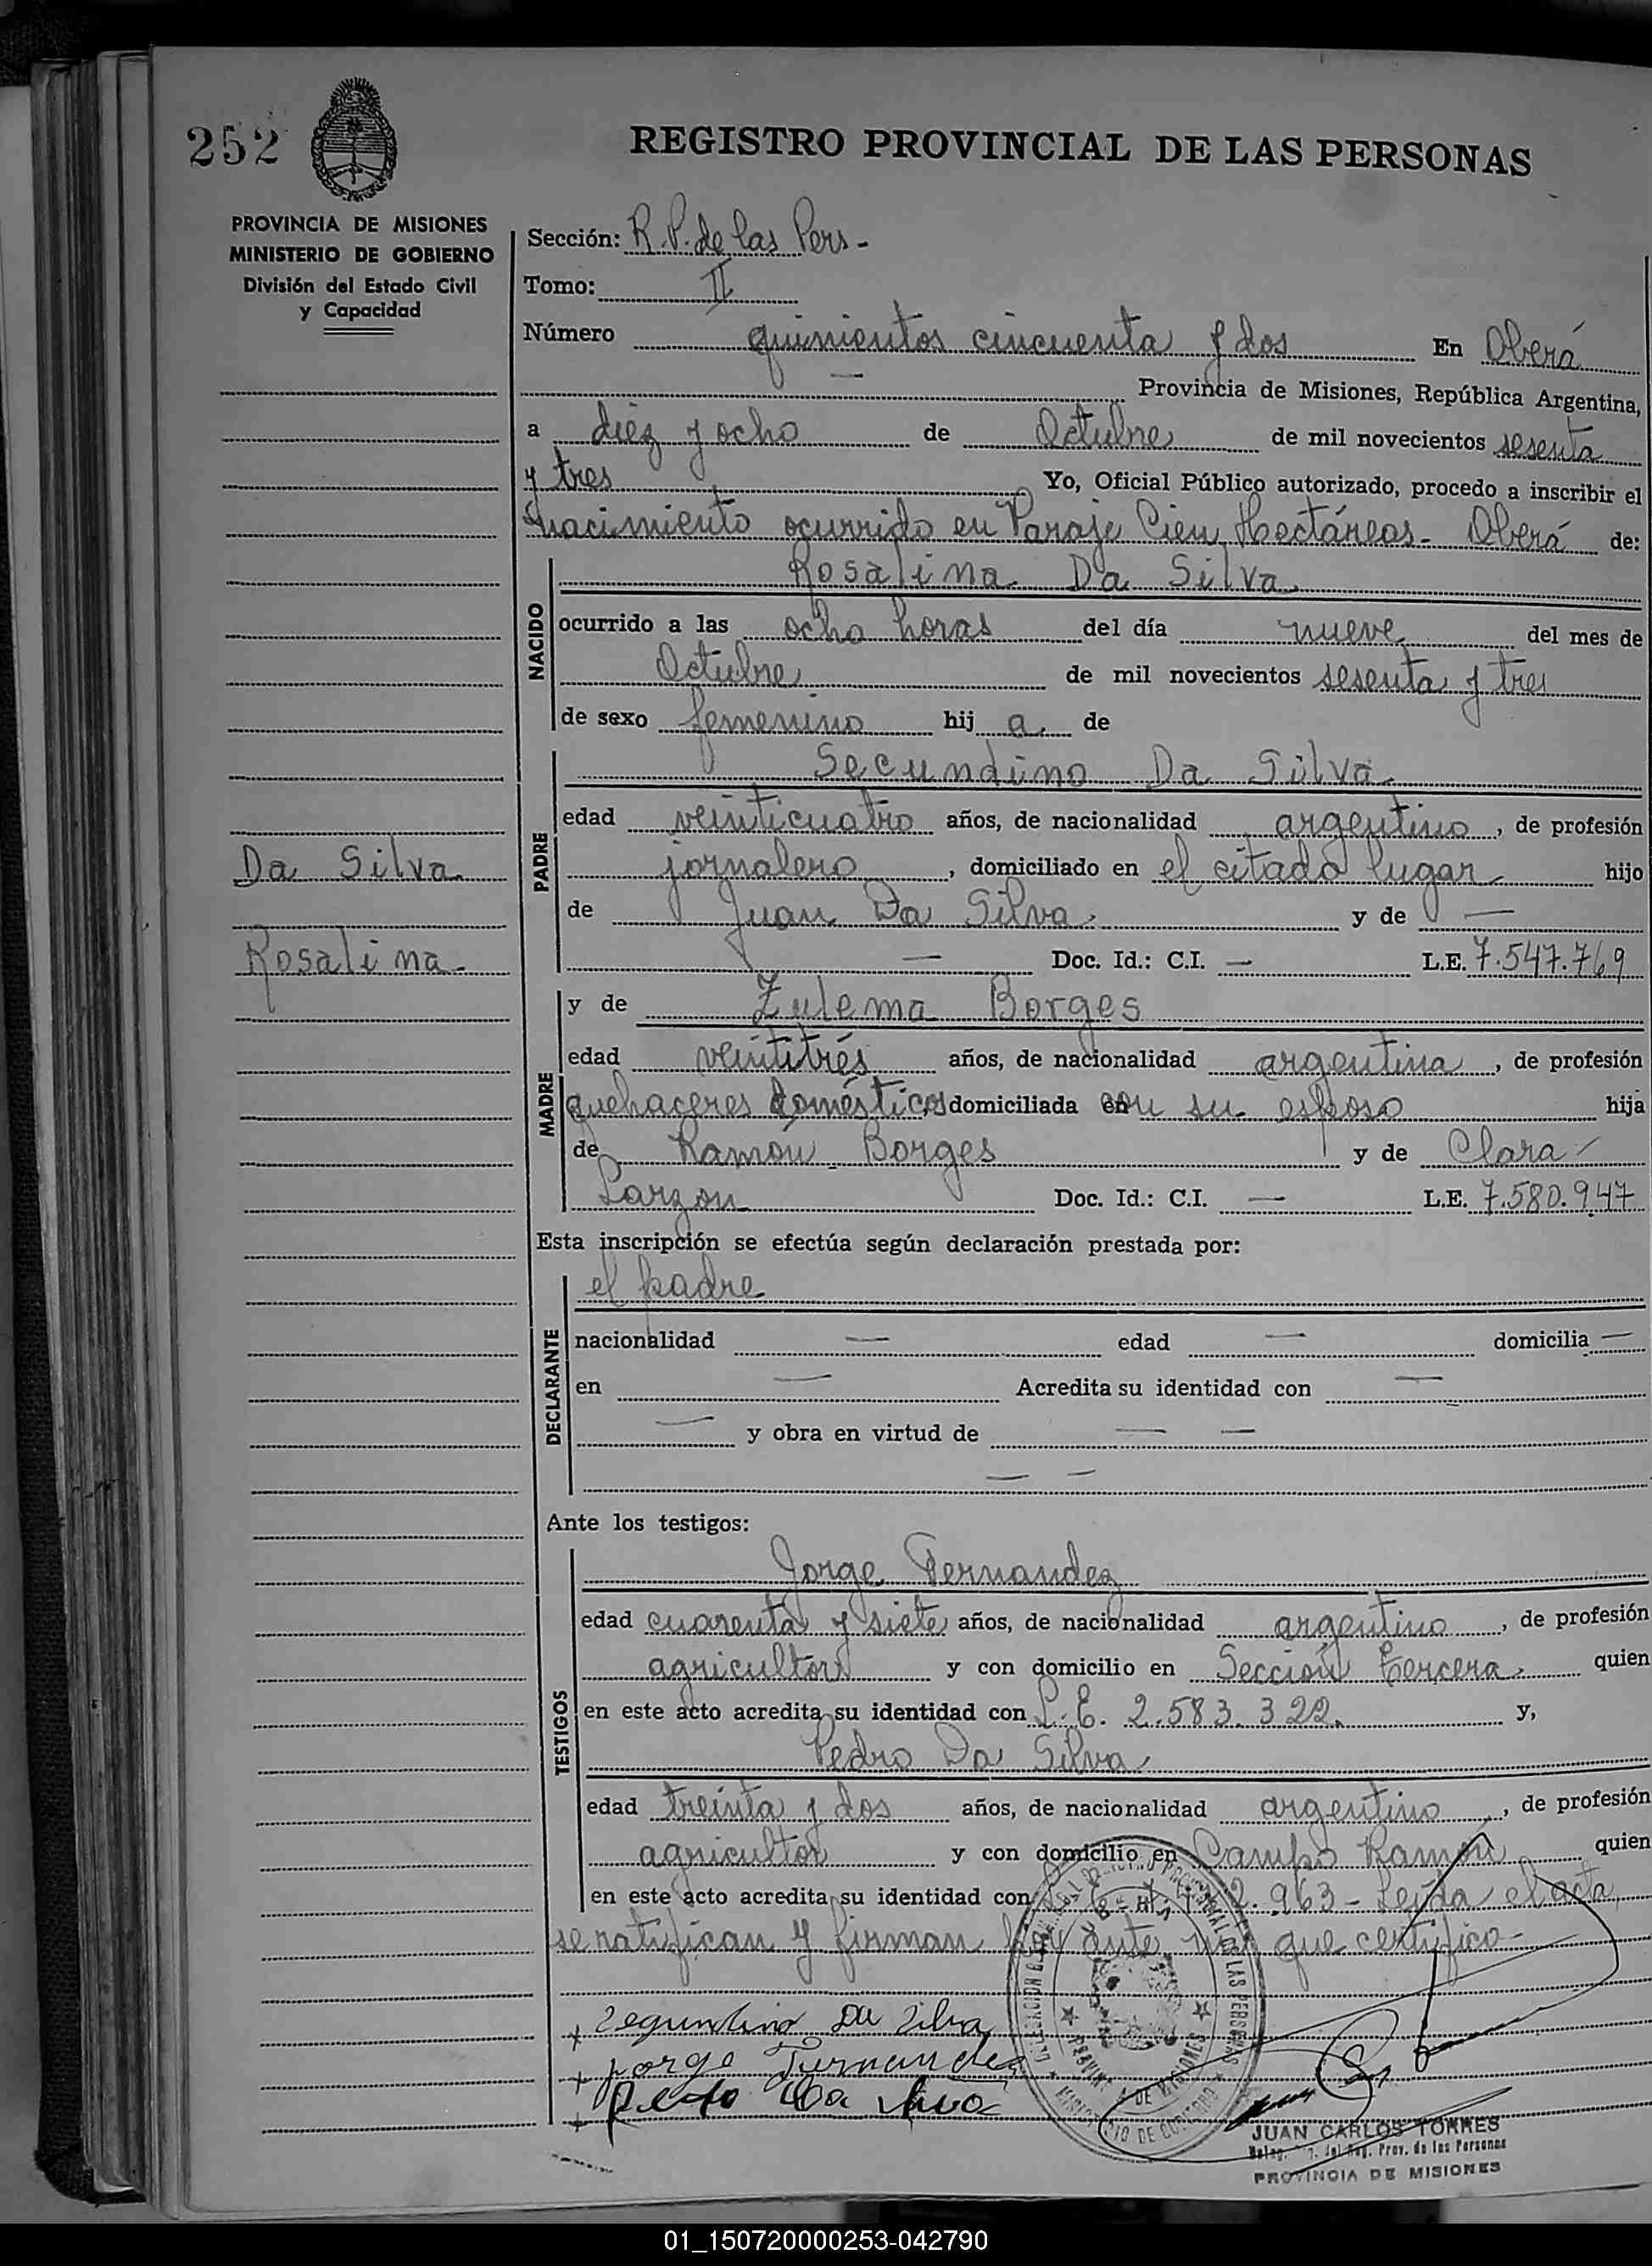 252
REGISTRO PROVINCIAL DE LAS PERSONAS
PROVINCIA DE MISIONES
MINISTERIO DE GOBIERNO
División del Estado Civil
y Capacidad
Sección: R.P. de las Pers -
Tomo: II
Número quinientos cincuenta y dos En Oberá
— Provincia de Misiones, República Argentina,
a diez y ocho de Octubre de mil novecientos sesenta
y tres Yo, Oficial Público autorizado, procedo a inscribir el
nacimiento ocurrido en Paraje Cien Hectáreas - Oberá de:
NACIDO
Rosalina Da Silva
ocurrido a las ocho horas del día nueve del mes de
Octubre de mil novecientos sesenta y tres
de sexo femenino hij a de
PADRE
Secundino Da Silva
edad veinticuatro años, de nacionalidad argentino, de profesión
jornalero, domiciliado en el citado lugar hijo
de Juan Da Silva y de —
— Doc. Id.: C.I. — L.E. 7.547.769
Da Silva
Rosalina -
MADRE
y de Zulema Borges
edad veintitrés años, de nacionalidad argentina, de profesión
quehaceres domésticos domiciliada con su esposo hija
de Ramón Borges y de Clara
Larzon Doc. Id.: C.I. — L.E. 7.580.947
Esta inscripción se efectúa según declaración prestada por:
DECLARANTE
el padre
nacionalidad — edad — domicilia —
en — Acredita su identidad con —
— y obra en virtud de — —
— —
Ante los testigos:
TESTIGOS
Jorge Fernandez
edad cuarenta y siete años, de nacionalidad argentino, de profesión
agricultor y con domicilio en Sección tercera quien
en este acto acredita su identidad con L.E. 2.583.322. y,
Pedro Da Silva
edad treinta y dos años, de nacionalidad argentino, de profesión
agricultor y con domicilio en Campo Ramón quien
en este acto acredita su identidad con 2.963 - Leída el acta,
se ratifican y firman por ante mí que certifico -
Segundino Da Silva
Jorge Fernandez
Pedro Da Silva
JUAN CARLOS TORRES
Reg. Prov. de las Personas
PROVINCIA DE MISIONES
01_150720000253-042790